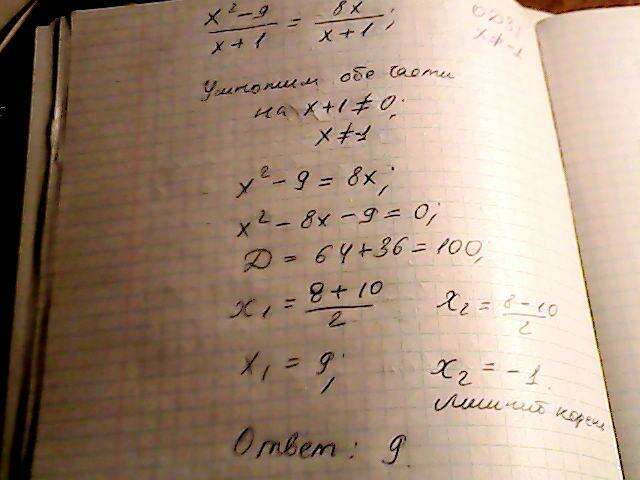 x² - 9 / x + 1 = 8x / x + 1 ;
ОДЗ:
x ≠ -1
Умножим обе части
на x + 1 ≠ 0;
x ≠ -1
x² - 9 = 8x;
x² - 8x - 9 = 0;
D = 64 + 36 = 100,
x₁ = 8 + 10 / 2
x₂ = 8 - 10 / 2
x₁ = 9;
x₂ = -1.
лишний корень
Ответ: 9.